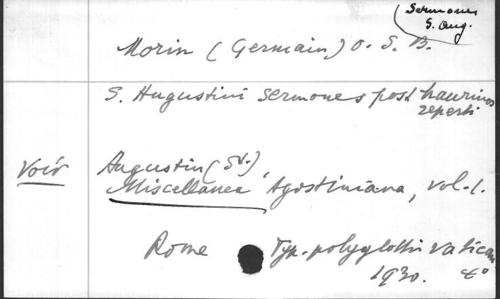 Sermones
S. Aug.
Morin (Germain) O. S. B.
S. Augustini sermones post Maurinos
reperti
Voir Augustin (St.),
Miscellanea Agostiniana, vol. 1.
Rome Typ. polyglottis vatican
1930. 4°